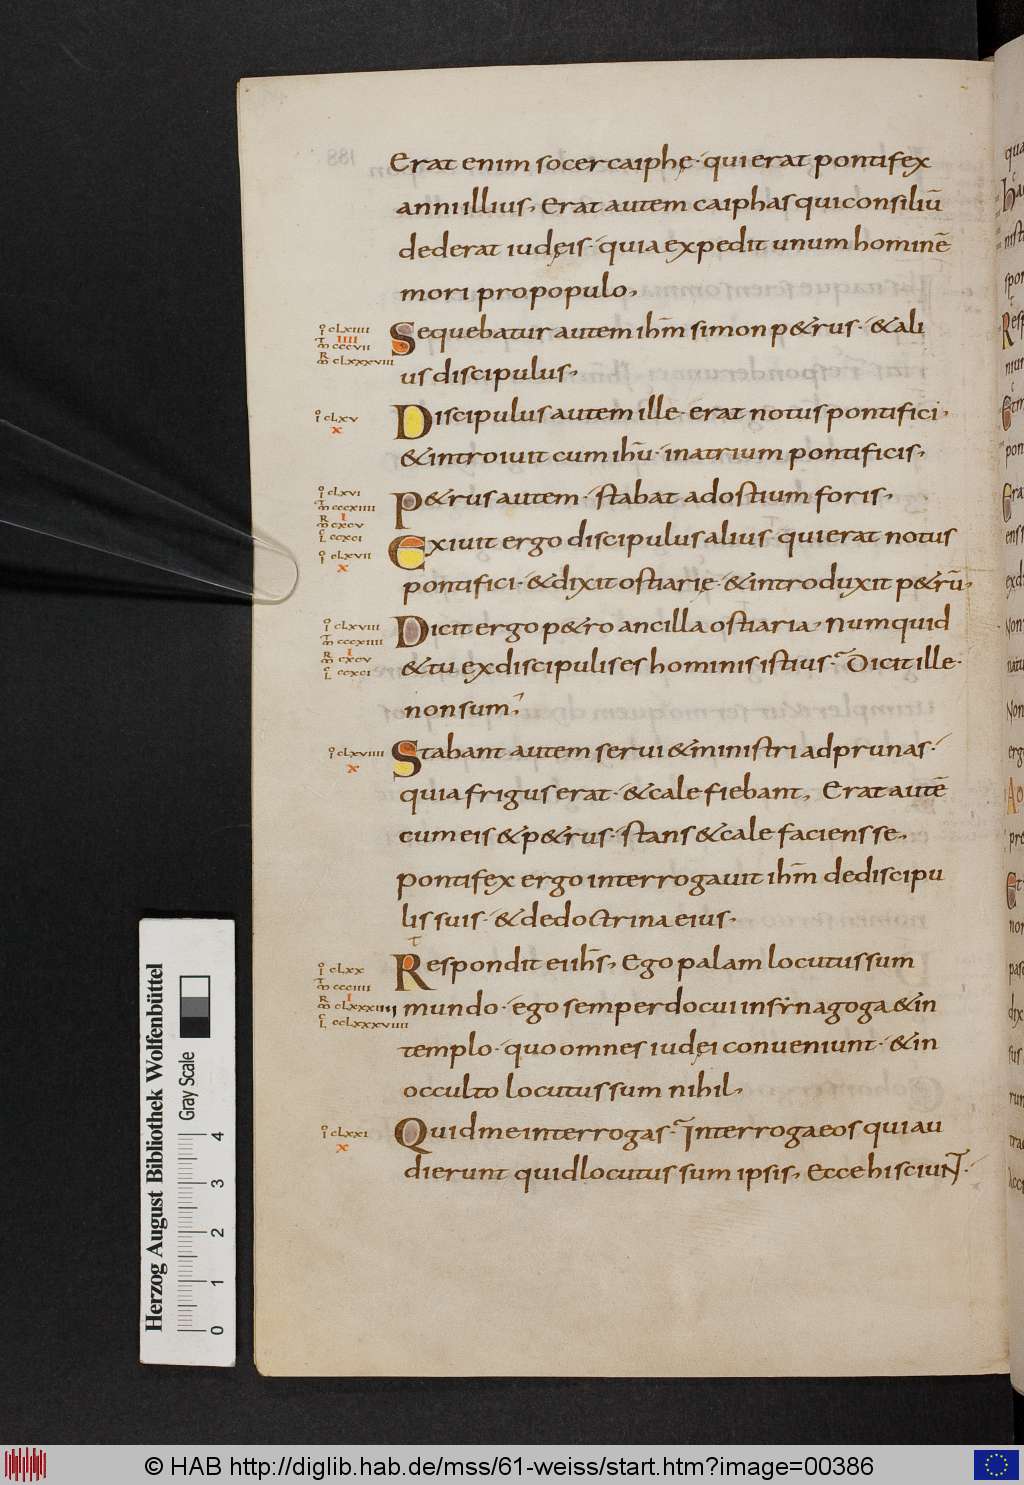 Erat enim socer caiphę · qui erat pontifex
anni illius, Erat autem caiphas qui consiliū
dederat iudęis · quia expedit unum hominē
mori pro populo,
Sequebatur autem ihm̄ simon p&rus · & ali
us discipulus,
Discipulus autem ille · erat notus pontifici ·
& introiuit cum ihū · in atrium pontificis,
P&rus autem · stabat ad ostium foris,
Exiuit ergo discipulus alius · qui erat notus
pontifici · & dixit ostiarię · & introduxit p&rū,
Dicit ergo p&ro ancilla ostiaria, Numquid
& tu ex discipulis es hominis istius · Dicit ille ·
non sum,
Stabant autem serui & ministri ad prunas ·
quia frigus erat · & calefiebant, Erat autē
cum eis & p&rus · stans & calefaciens se,
Pontifex ergo interrogauit ihm̄ de discipu
lis suis · & de doctrina eius ·
Respondit ei ihs̄, Ego palam locutus sum
mundo · ego semper docui in synagoga & in
templo · quo omnes iudęi conueniunt · & in
occulto locutus sum nihil,
Quid me interrogas · Interroga eos qui au
dierunt quid locutus sum ipsis, Ecce hi sciunt ·
CLXIIII
IIII
CCCVII
CLXXXVIII
CLXV
X
CLXVI
CCCXIIII
I
CXCV
CCXCI
CLXVII
X
CLXVIII
CCCXIIII
I
CXCV
CCXCI
CLXVIIII
X
CLXX
CCCIIII
I
CLXXXIIII
CCLXXVIIII
CLXXI
X
Herzog August Bibliothek Wolfenbüttel
Gray Scale
0 1 2 3 4
© HAB http://diglib.hab.de/mss/61-weiss/start.htm?image=00386